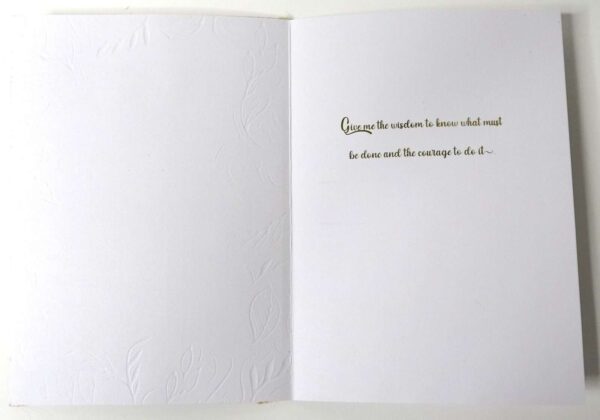 Give me the wisdom to know what must
be done and the courage to do it~